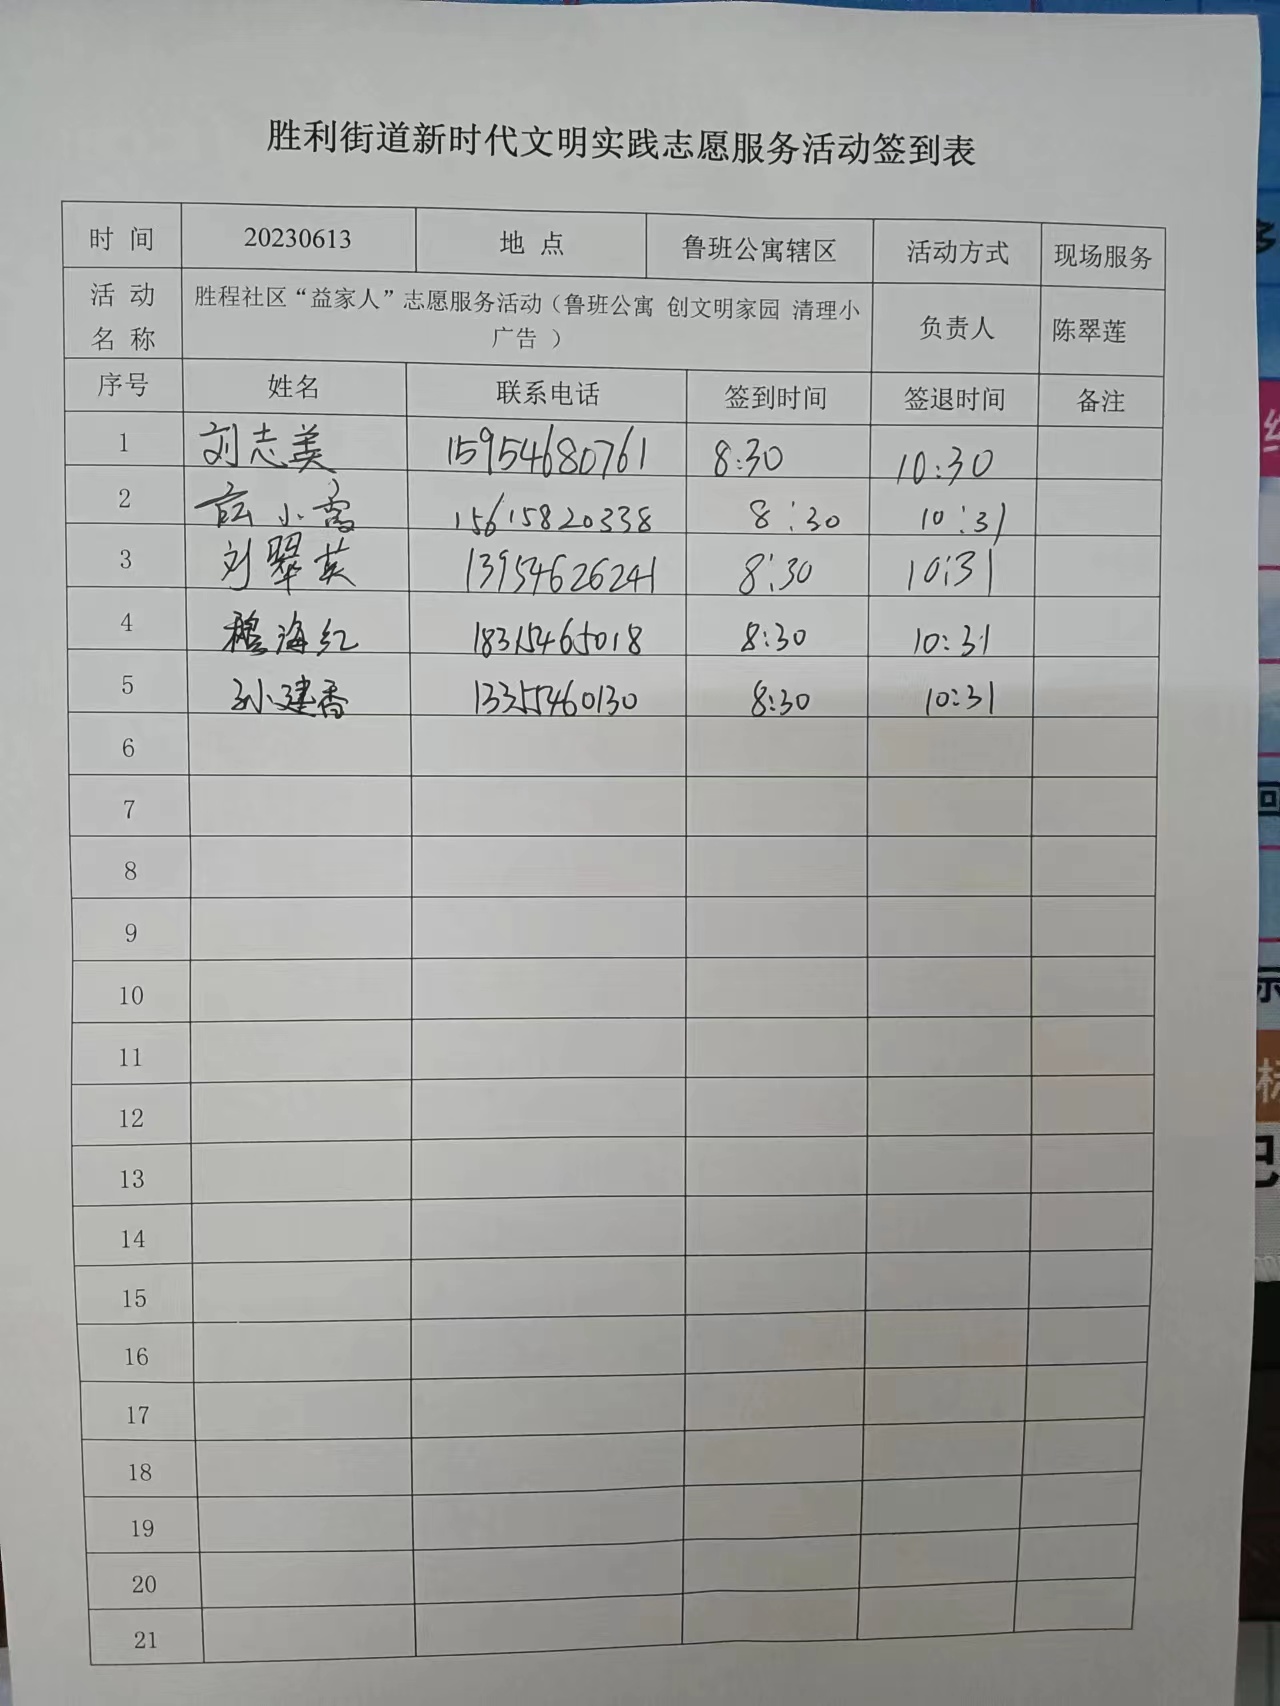 胜利街道新时代文明实践志愿服务活动签到表
时 间 20230613 地 点 鲁班公寓辖区 活动方式 现场服务
活 动 名 称 胜程社区“益家人”志愿服务活动（鲁班公寓 创文明家园 清理小
广告 ） 负责人 陈翠莲
序号 姓名 联系电话 签到时间 签退时间 备注
1 刘志美 15954680761 8:30 10:30
2 小霞 15615820338 8:30 10:31
3 刘翠英 13954626241 8:30 10:31
4 穆海红 18315465018 8:30 10:31
5 孙建香 13355460130 8:30 10:31
6
7
8
9
10
11
12
13
14
15
16
17
18
19
20
21